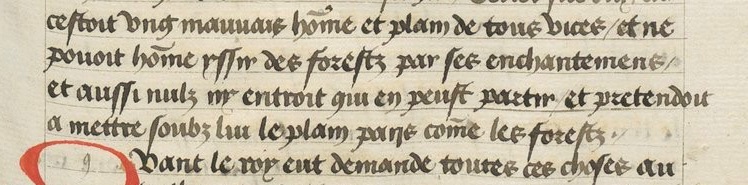 cestoit ung mauvais hōme et plain de tous vices / et ne
pouoit hōme yssir des forestz par ses enchantemens /
et aussi nulz ny entroit qui en peust partir et pretendoit
a mettre soubz lui le plain pays cōme les forestz
q Vant le roy eut demande toutes ces choses au